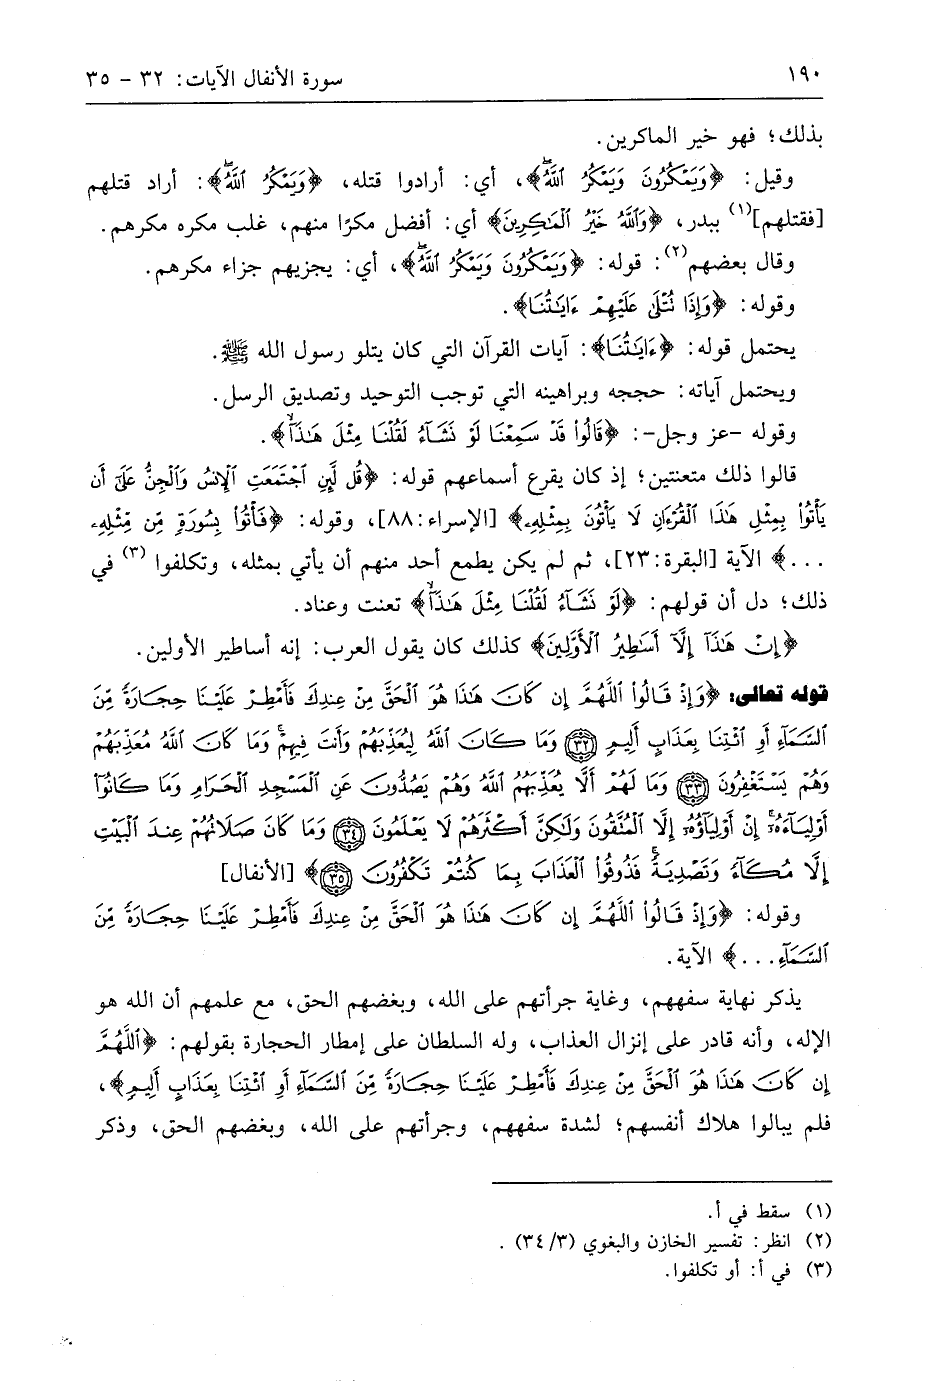 ١٩٠
سورة الأنفال الآيات: ٣٢ - ٣٥
بذلك؛ فهو خير الماكرين.
وقيل: ﴿وَيَمْكُرُونَ وَيَمْكُرُ ٱللَّهُۖ﴾، أي: أرادوا قتله، ﴿وَيَمْكُرُ ٱللَّهُۖ﴾: أراد قتلهم
[فقتلهم](١) ببدر، ﴿وَٱللَّهُ خَيْرُ ٱلْمَـٰكِرِينَ﴾ أي: أفضل مكرًا منهم، غلب مكره مكرهم.
وقال بعضهم(٢): قوله: ﴿وَيَمْكُرُونَ وَيَمْكُرُ ٱللَّهُۖ﴾، أي: يجزيهم جزاء مكرهم.
وقوله: ﴿وَإِذَا تُتْلَىٰ عَلَيْهِمْ ءَايَـٰتُنَا﴾.
يحتمل قوله: ﴿ءَايَـٰتُنَا﴾: آيات القرآن التي كان يتلو رسول الله ﷺ.
ويحتمل آياته: حججه وبراهينه التي توجب التوحيد وتصديق الرسل.
وقوله -عز وجل-: ﴿قَالُوا۟ قَدْ سَمِعْنَا لَوْ نَشَآءُ لَقُلْنَا مِثْلَ هَـٰذَآۙ﴾.
قالوا ذلك متعنتين؛ إذ كان يقرع أسماعهم قوله: ﴿قُل لَّئِنِ ٱجْتَمَعَتِ ٱلْإِنسُ وَٱلْجِنُّ عَلَىٰٓ أَن
يَأْتُوا۟ بِمِثْلِ هَـٰذَا ٱلْقُرْءَانِ لَا يَأْتُونَ بِمِثْلِهِۦ﴾ [الإسراء:٨٨]، وقوله: ﴿فَأْتُوا۟ بِسُورَةٍ مِّن مِّثْلِهِۦ
...﴾ الآية [البقرة:٢٣]، ثم لم يكن يطمع أحد منهم أن يأتي بمثله، وتكلفوا (٣) في
ذلك؛ دل أن قولهم: ﴿لَوْ نَشَآءُ لَقُلْنَا مِثْلَ هَـٰذَآۙ﴾ تعنت وعناد.
﴿إِنْ هَـٰذَآ إِلَّآ أَسَـٰطِيرُ ٱلْأَوَّلِينَ﴾ كذلك كان يقول العرب: إنه أساطير الأولين.
قوله تعالى: ﴿وَإِذْ قَالُوا۟ ٱللَّهُمَّ إِن كَانَ هَـٰذَا هُوَ ٱلْحَقَّ مِنْ عِندِكَ فَأَمْطِرْ عَلَيْنَا حِجَارَةً مِّنَ
ٱلسَّمَآءِ أَوِ ٱئْتِنَا بِعَذَابٍ أَلِيمٍ ٣٢ وَمَا كَانَ ٱللَّهُ لِيُعَذِّبَهُمْ وَأَنتَ فِيهِمْۚ وَمَا كَانَ ٱللَّهُ مُعَذِّبَهُمْ
وَهُمْ يَسْتَغْفِرُونَ ٣٣ وَمَا لَهُمْ أَلَّا يُعَذِّبَهُمُ ٱللَّهُ وَهُمْ يَصُدُّونَ عَنِ ٱلْمَسْجِدِ ٱلْحَرَامِ وَمَا كَانُوٓا۟
أَوْلِيَآءَهُۥٓۚ إِنْ أَوْلِيَآؤُهُۥٓ إِلَّا ٱلْمُتَّقُونَ وَلَـٰكِنَّ أَكْثَرَهُمْ لَا يَعْلَمُونَ ٣٤ وَمَا كَانَ صَلَاتُهُمْ عِندَ ٱلْبَيْتِ
إِلَّا مُكَآءً وَتَصْدِيَةًۚ فَذُوقُوا۟ ٱلْعَذَابَ بِمَا كُنتُمْ تَكْفُرُونَ ٣٥﴾ [الأنفال]
وقوله: ﴿وَإِذْ قَالُوا۟ ٱللَّهُمَّ إِن كَانَ هَـٰذَا هُوَ ٱلْحَقَّ مِنْ عِندِكَ فَأَمْطِرْ عَلَيْنَا حِجَارَةً مِّنَ
ٱلسَّمَآءِ...﴾ الآية.
يذكر نهاية سفههم، وغاية جرأتهم على الله، وبغضهم الحق، مع علمهم أن الله هو
الإله، وأنه قادر على إنزال العذاب، وله السلطان على إمطار الحجارة بقولهم: ﴿ٱللَّهُمَّ
إِن كَانَ هَـٰذَا هُوَ ٱلْحَقَّ مِنْ عِندِكَ فَأَمْطِرْ عَلَيْنَا حِجَارَةً مِّنَ ٱلسَّمَآءِ أَوِ ٱئْتِنَا بِعَذَابٍ أَلِيمٍ﴾،
فلم يبالوا هلاك أنفسهم؛ لشدة سفههم، وجرأتهم على الله، وبغضهم الحق، وذكر
(١) سقط في أ.
(٢) انظر: تفسير الخازن والبغوي (٣٤/٣) .
(٣) في أ: أو تكلفوا.